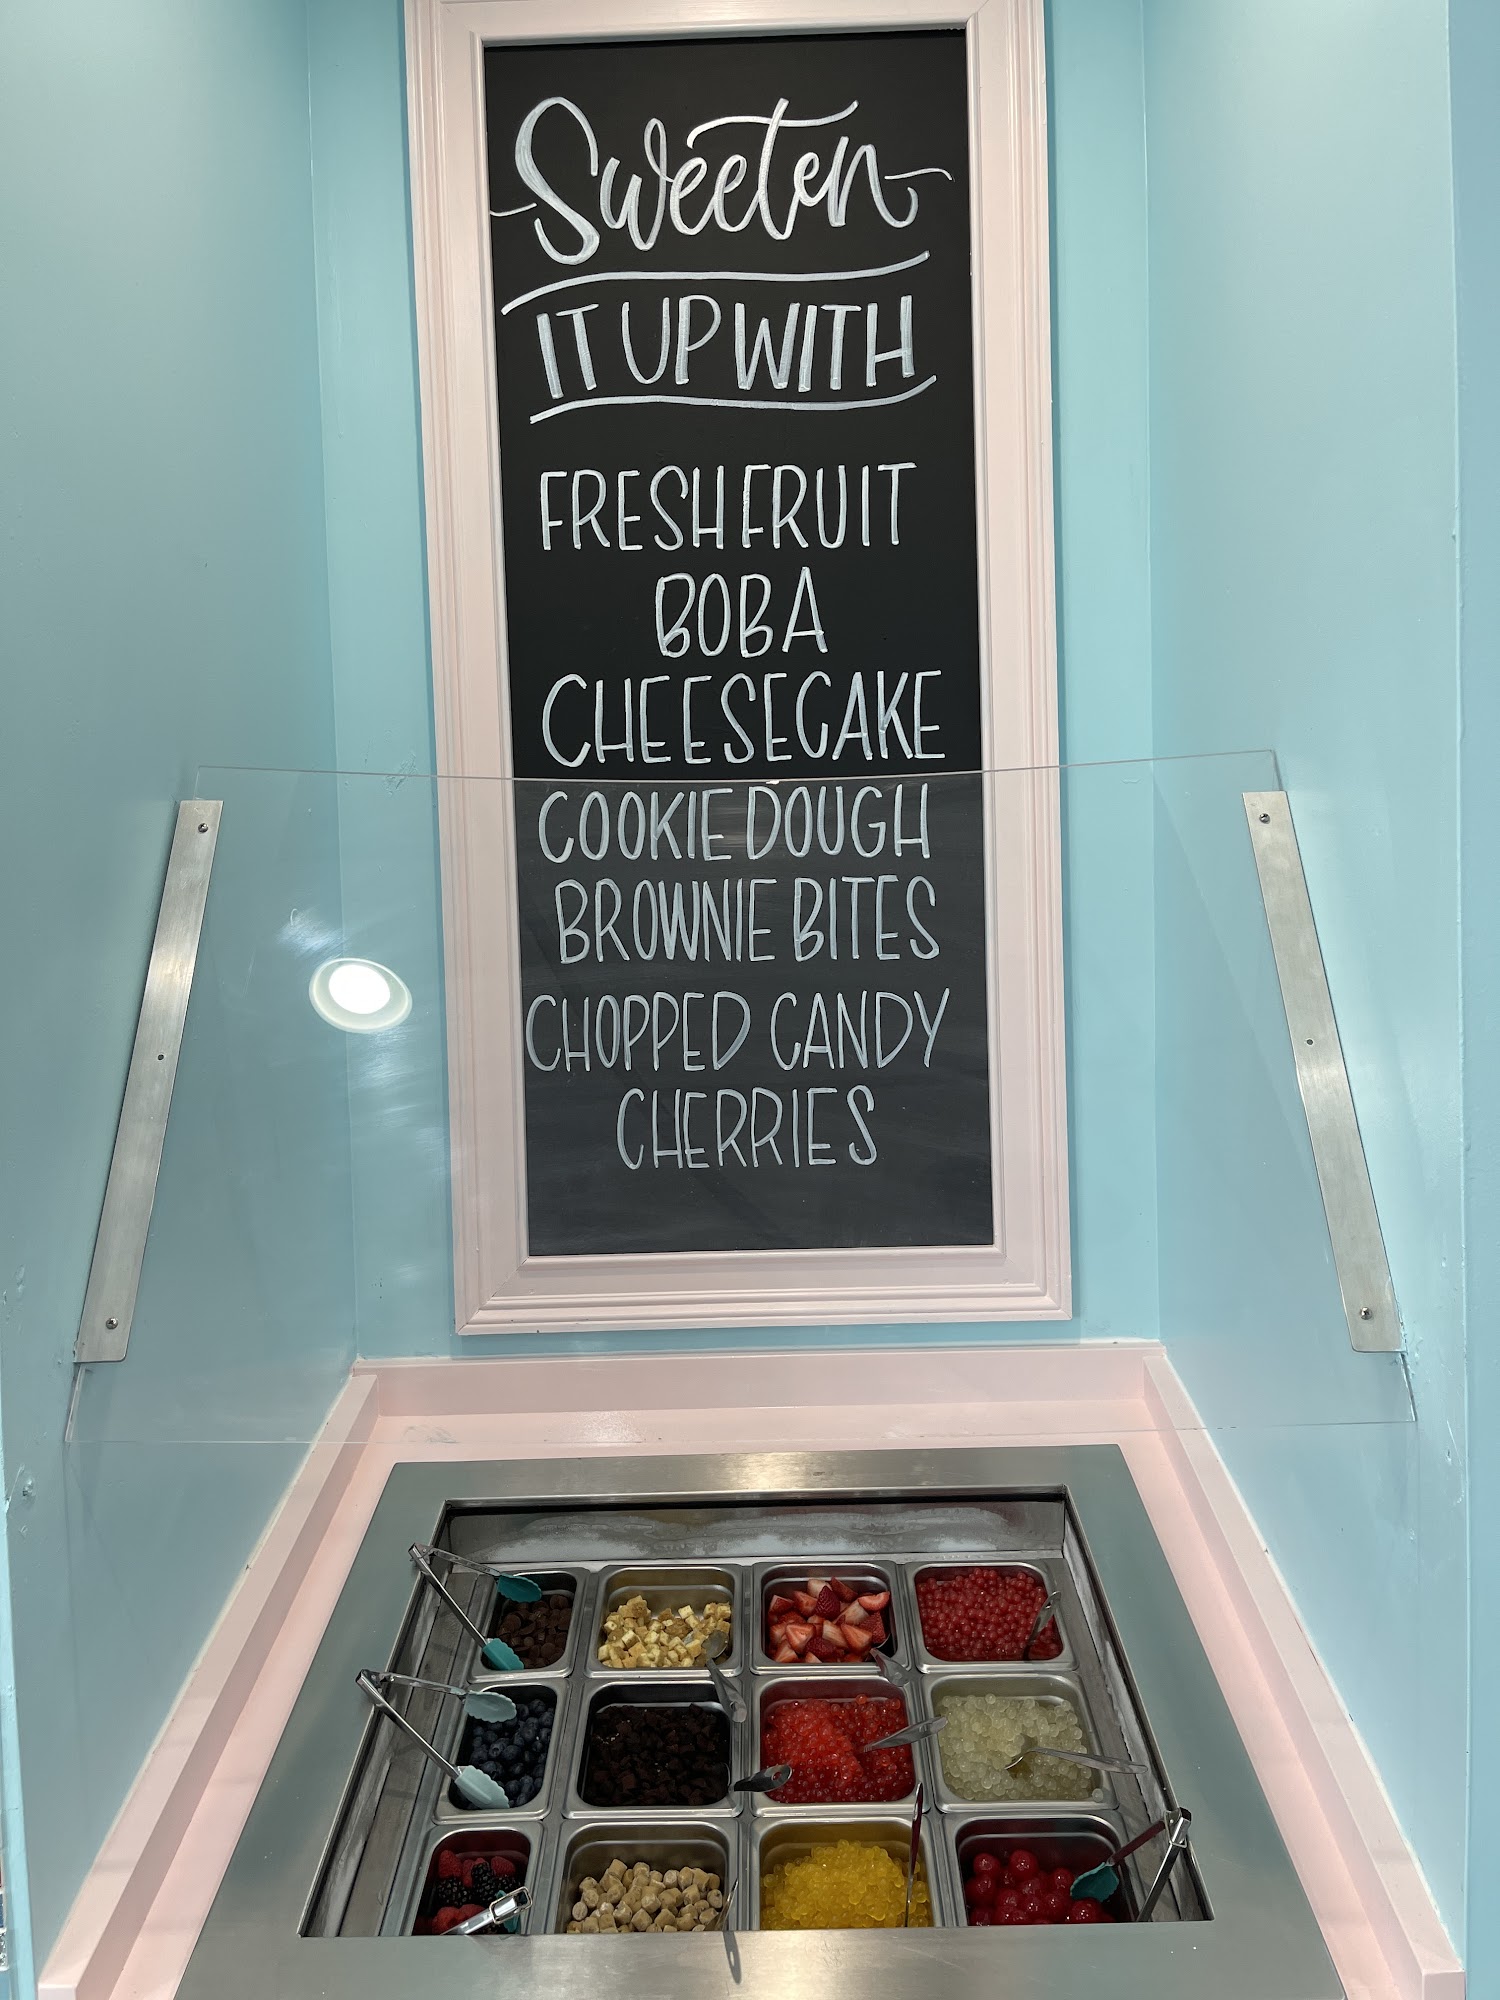 Sweeten
IT UP WITH
FRESH FRUIT
BOBA
CHEESECAKE
COOKIE DOUGH
BROWNIE BITES
CHOPPED CANDY
CHERRIES